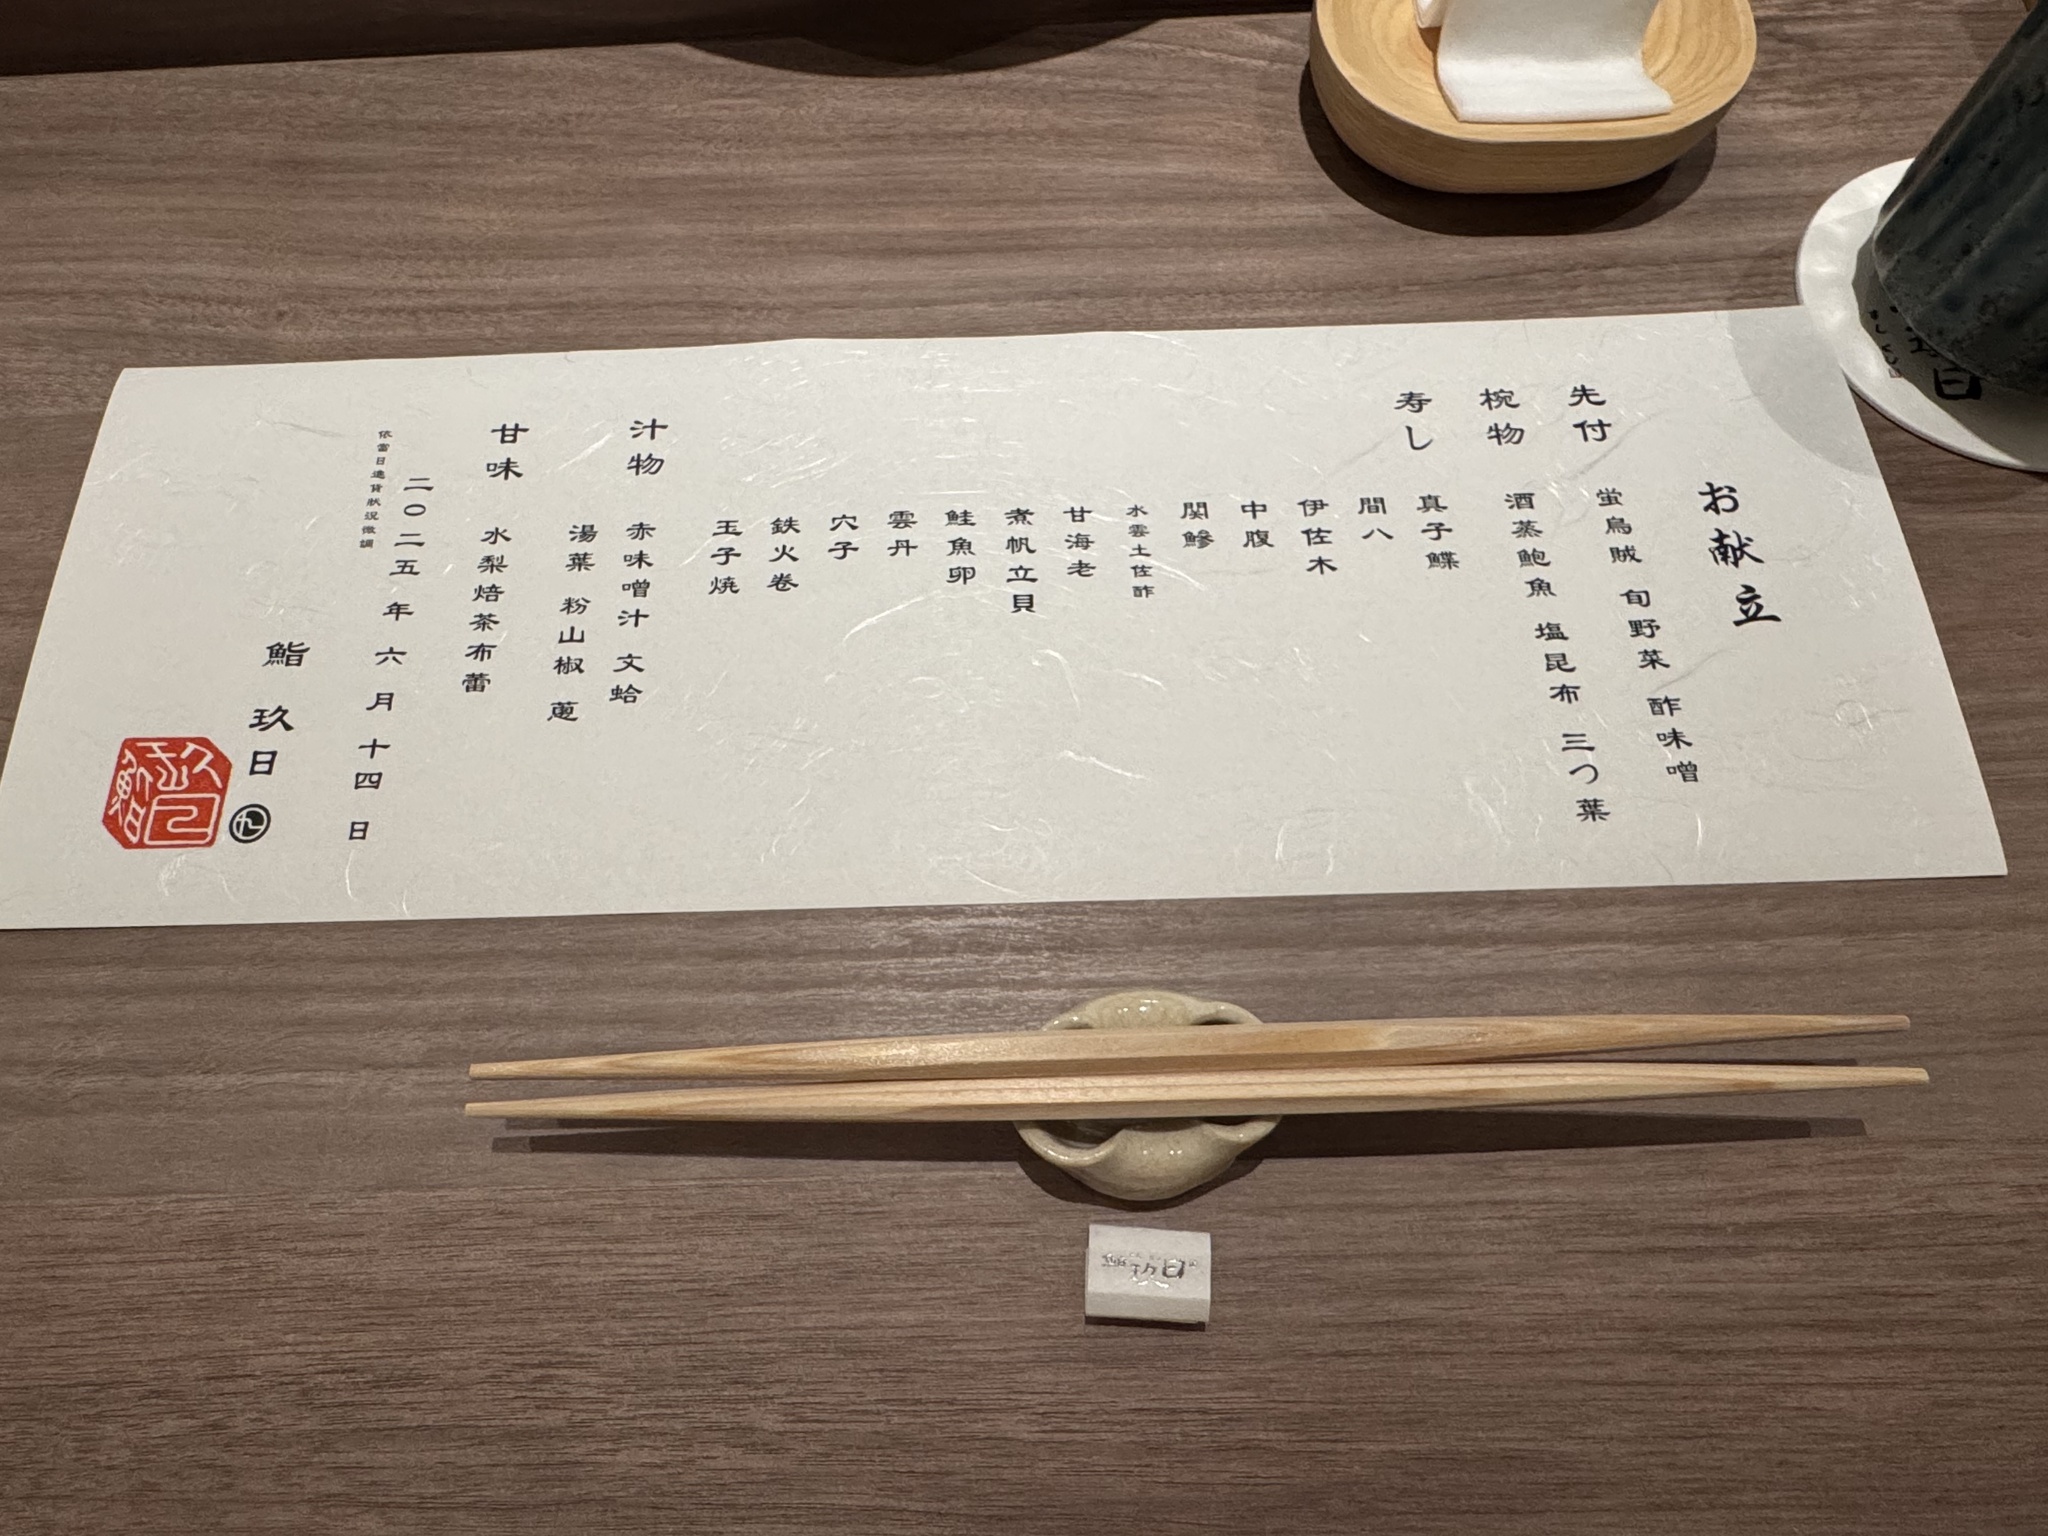 お献立
先付 蛍烏賊 旬野菜 酢味噌
椀物 酒蒸鮑魚 塩昆布 三つ葉
寿し 真子鰈
間八
伊佐木
中腹
関鰺
水雲土佐酢
甘海老
煮帆立貝
鮭魚卵
雲丹
穴子
鉄火巻
玉子焼
汁物 赤味噌汁 文蛤
湯葉 粉山椒 葱
甘味 水梨焙茶布蕾
二〇二五年 六月 十四日
依當日進貨狀況微調
鮨 玖日
九
鮨玖日
日
玖日